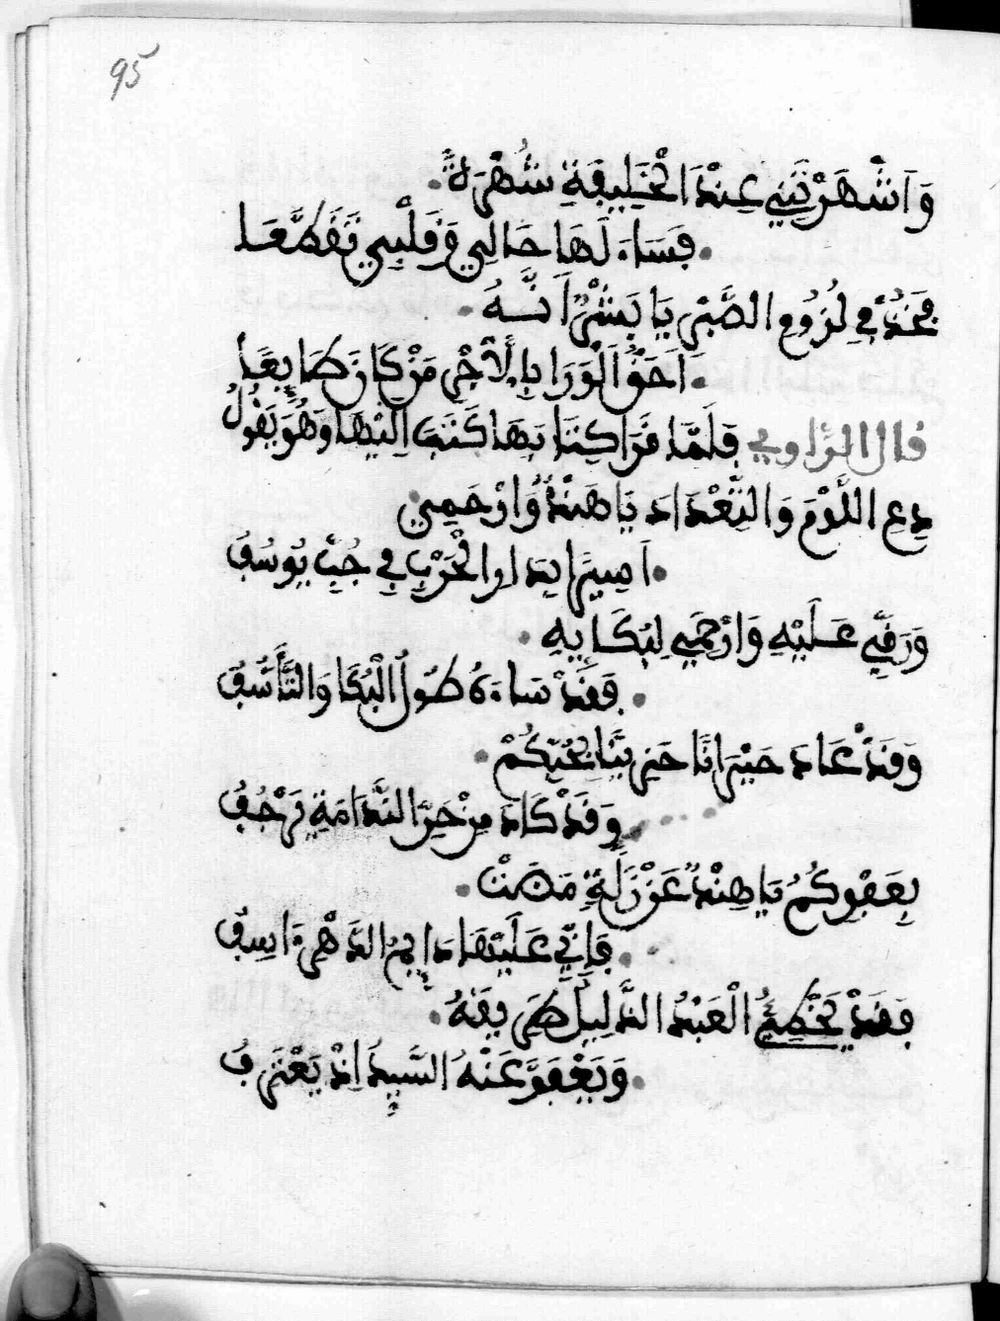 95
وَاَشْهَرْتَنِي عِنْدَ الْخَلِيفَةِ شُهْرَةً
فَسَاءَ لَهَا حَالِي وَقَلْبِي تَقَطَّعَا
فَخُذْ فِي لُزُومِ الصَّبْرِ يَا بِشْرُ اَنَّهُ
اَحَقُّ الْوَرَا بِالْاَجْرِ مَنْ كَانَ طَايِعَا
قال الراوي فلَمَّا قَرَا كِتَابَهَا كَتَبَ اليْهَا وَهُوَ يَقُولُ
دِعِ اللَّوْمَ وَالتِّعْدَادَ يَا هِنْدُ وَارْحَمِي
اَسِيرًا بِدَارِ الْحَرْبِ فِي جُبِّ يُوسُفُ
وَرِقِّي عَلَيْهِ وَارْحَمِي لِبُكَايِهِ
فَقَدْ سَاءَهُ طُولُ الْبُكَا وَالتَّأَسُّفُ
وَقَدْ عَادَ حَيْرَانًا حَزِينًا بِحُبِّكُمْ
وَقَدْ كَادَ مِنْ حَرِّ النَّدَامَةِ يَرْجُفُ
بِعَفْوِكُمُ يَا هِنْدُ عَنْ زَلَّةٍ مَضَتْ
فَاِنِّي عَلَيْهَا دَايِمُ الدَّهْرِ ءَاسِفُ
فَقَدْ يُخْطِئُ الْعَبْدُ الذَّلِيلُ طَرِيقَهُ
وَيَعْفُو عَنْهُ السَّيِّدُ اِذْ يَعْتَرِفُ